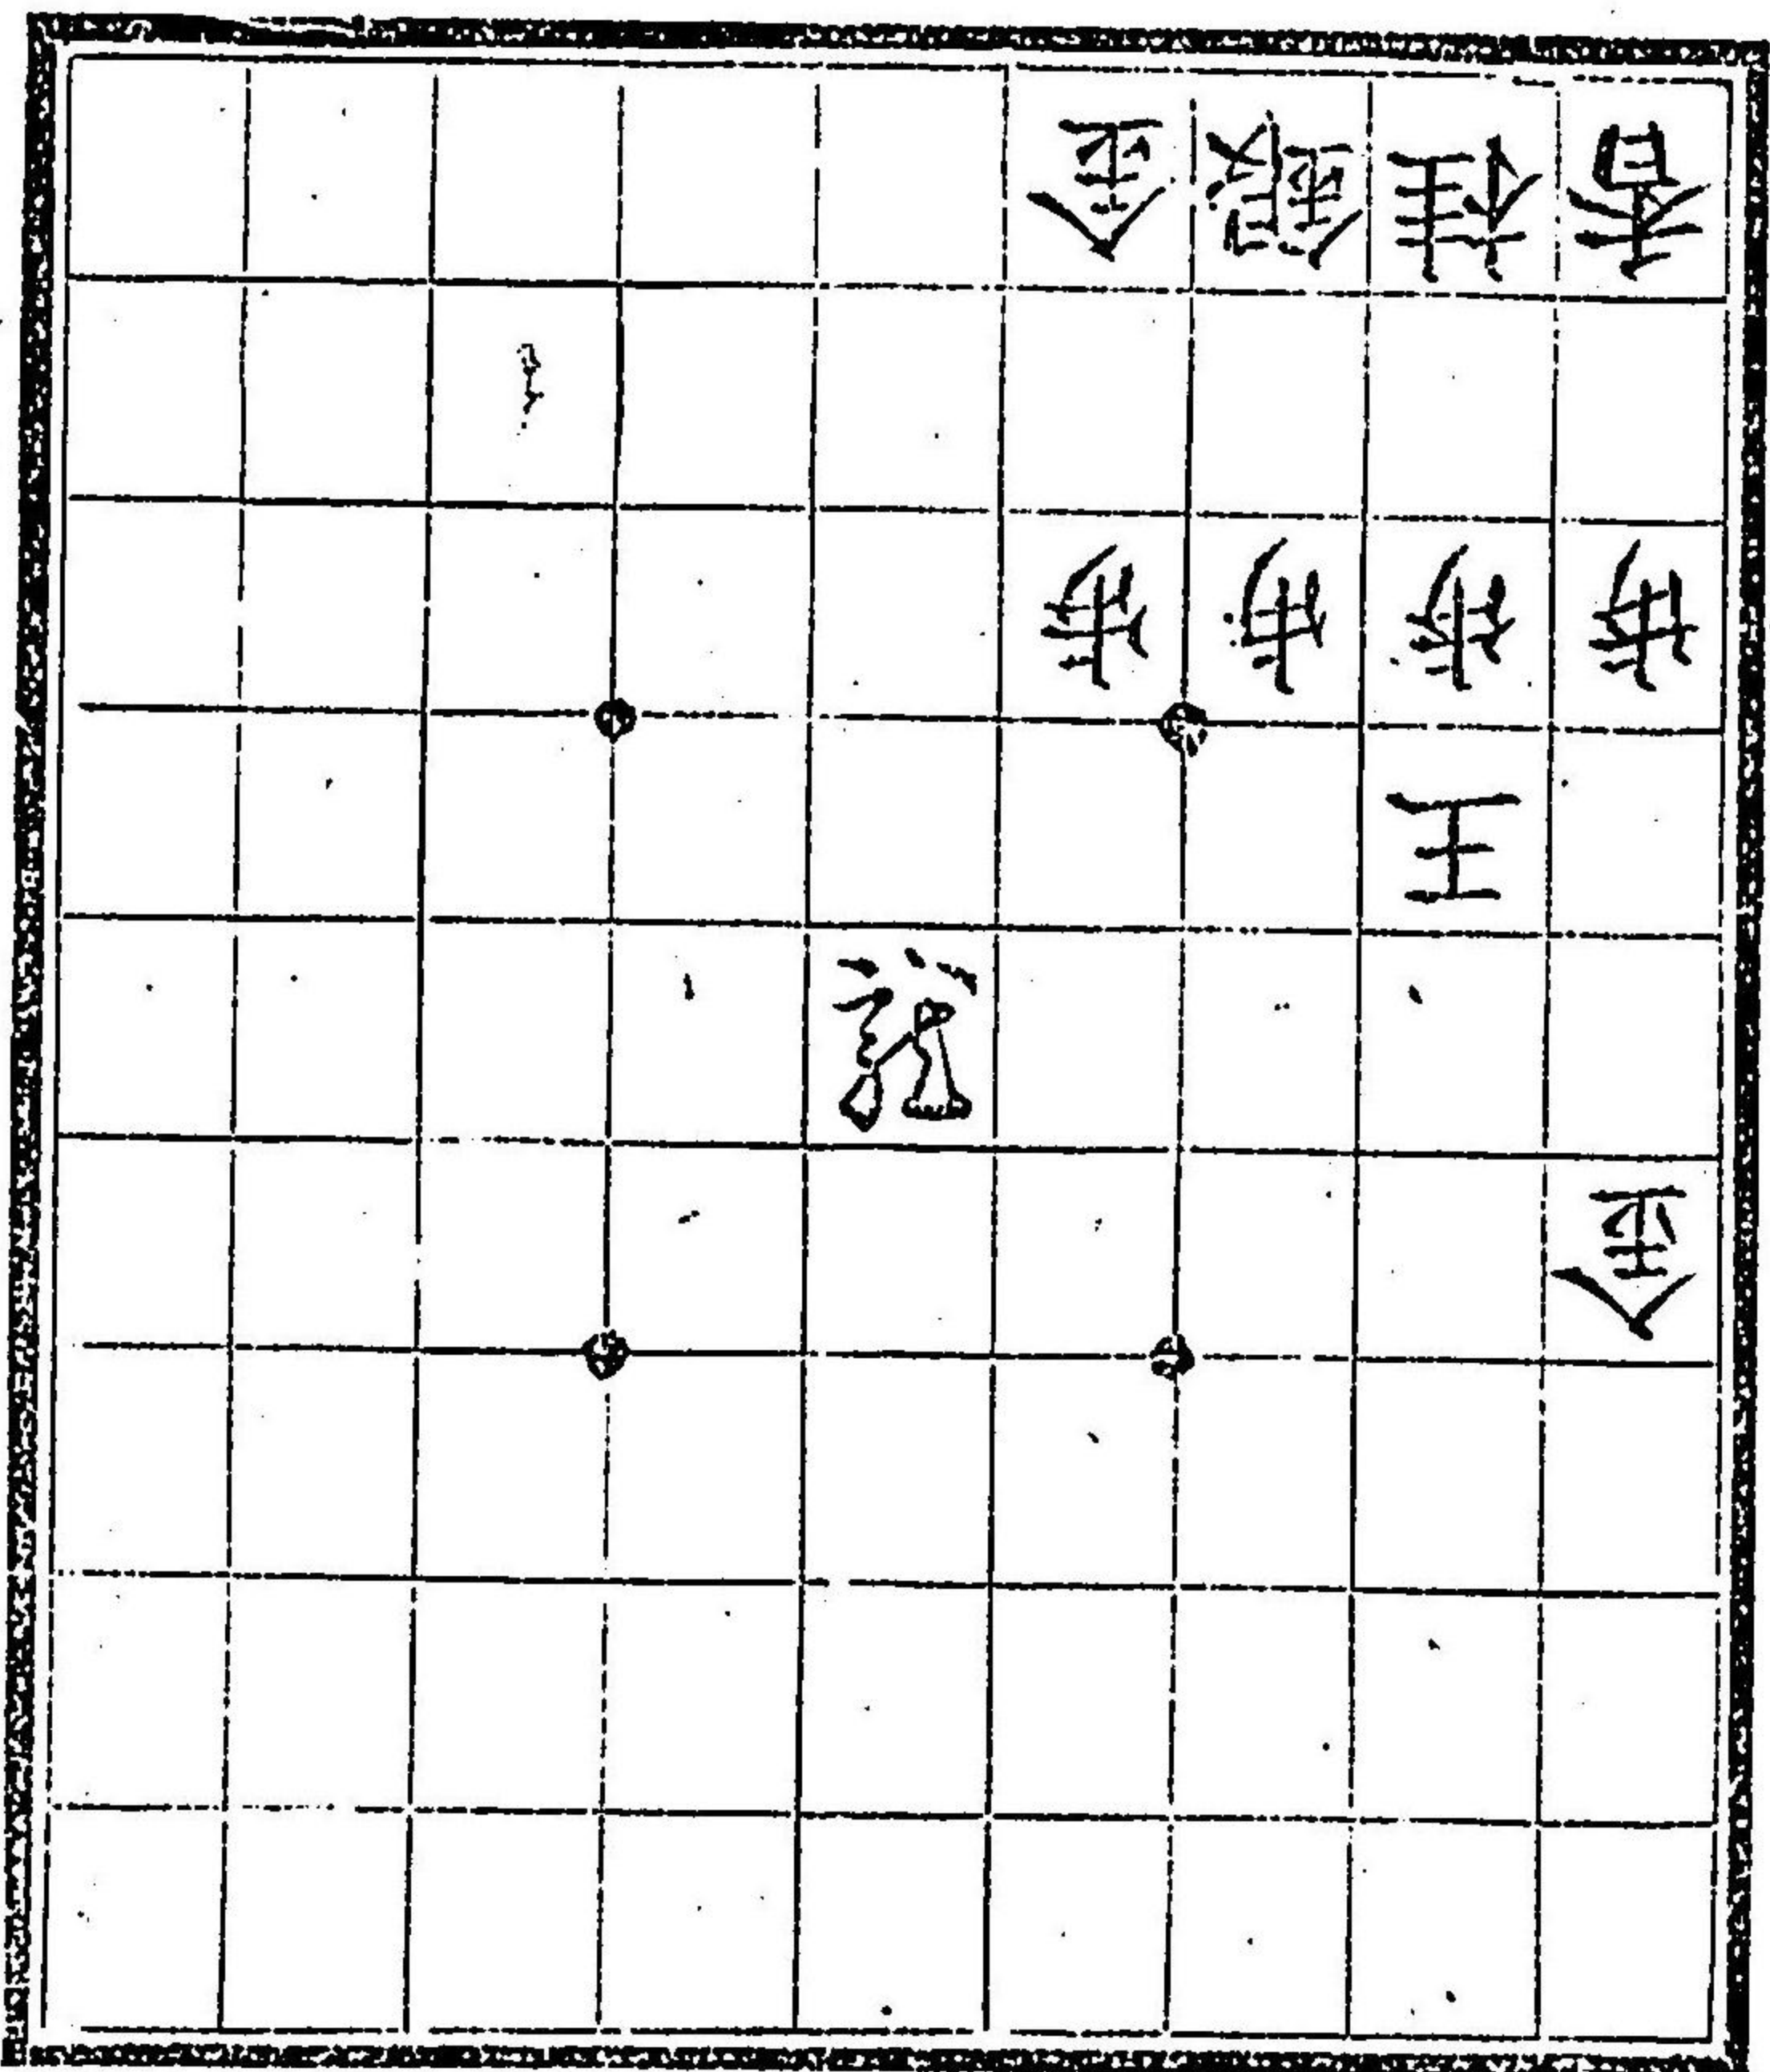 金 銀 桂 香
歩 歩 歩 歩
王
金